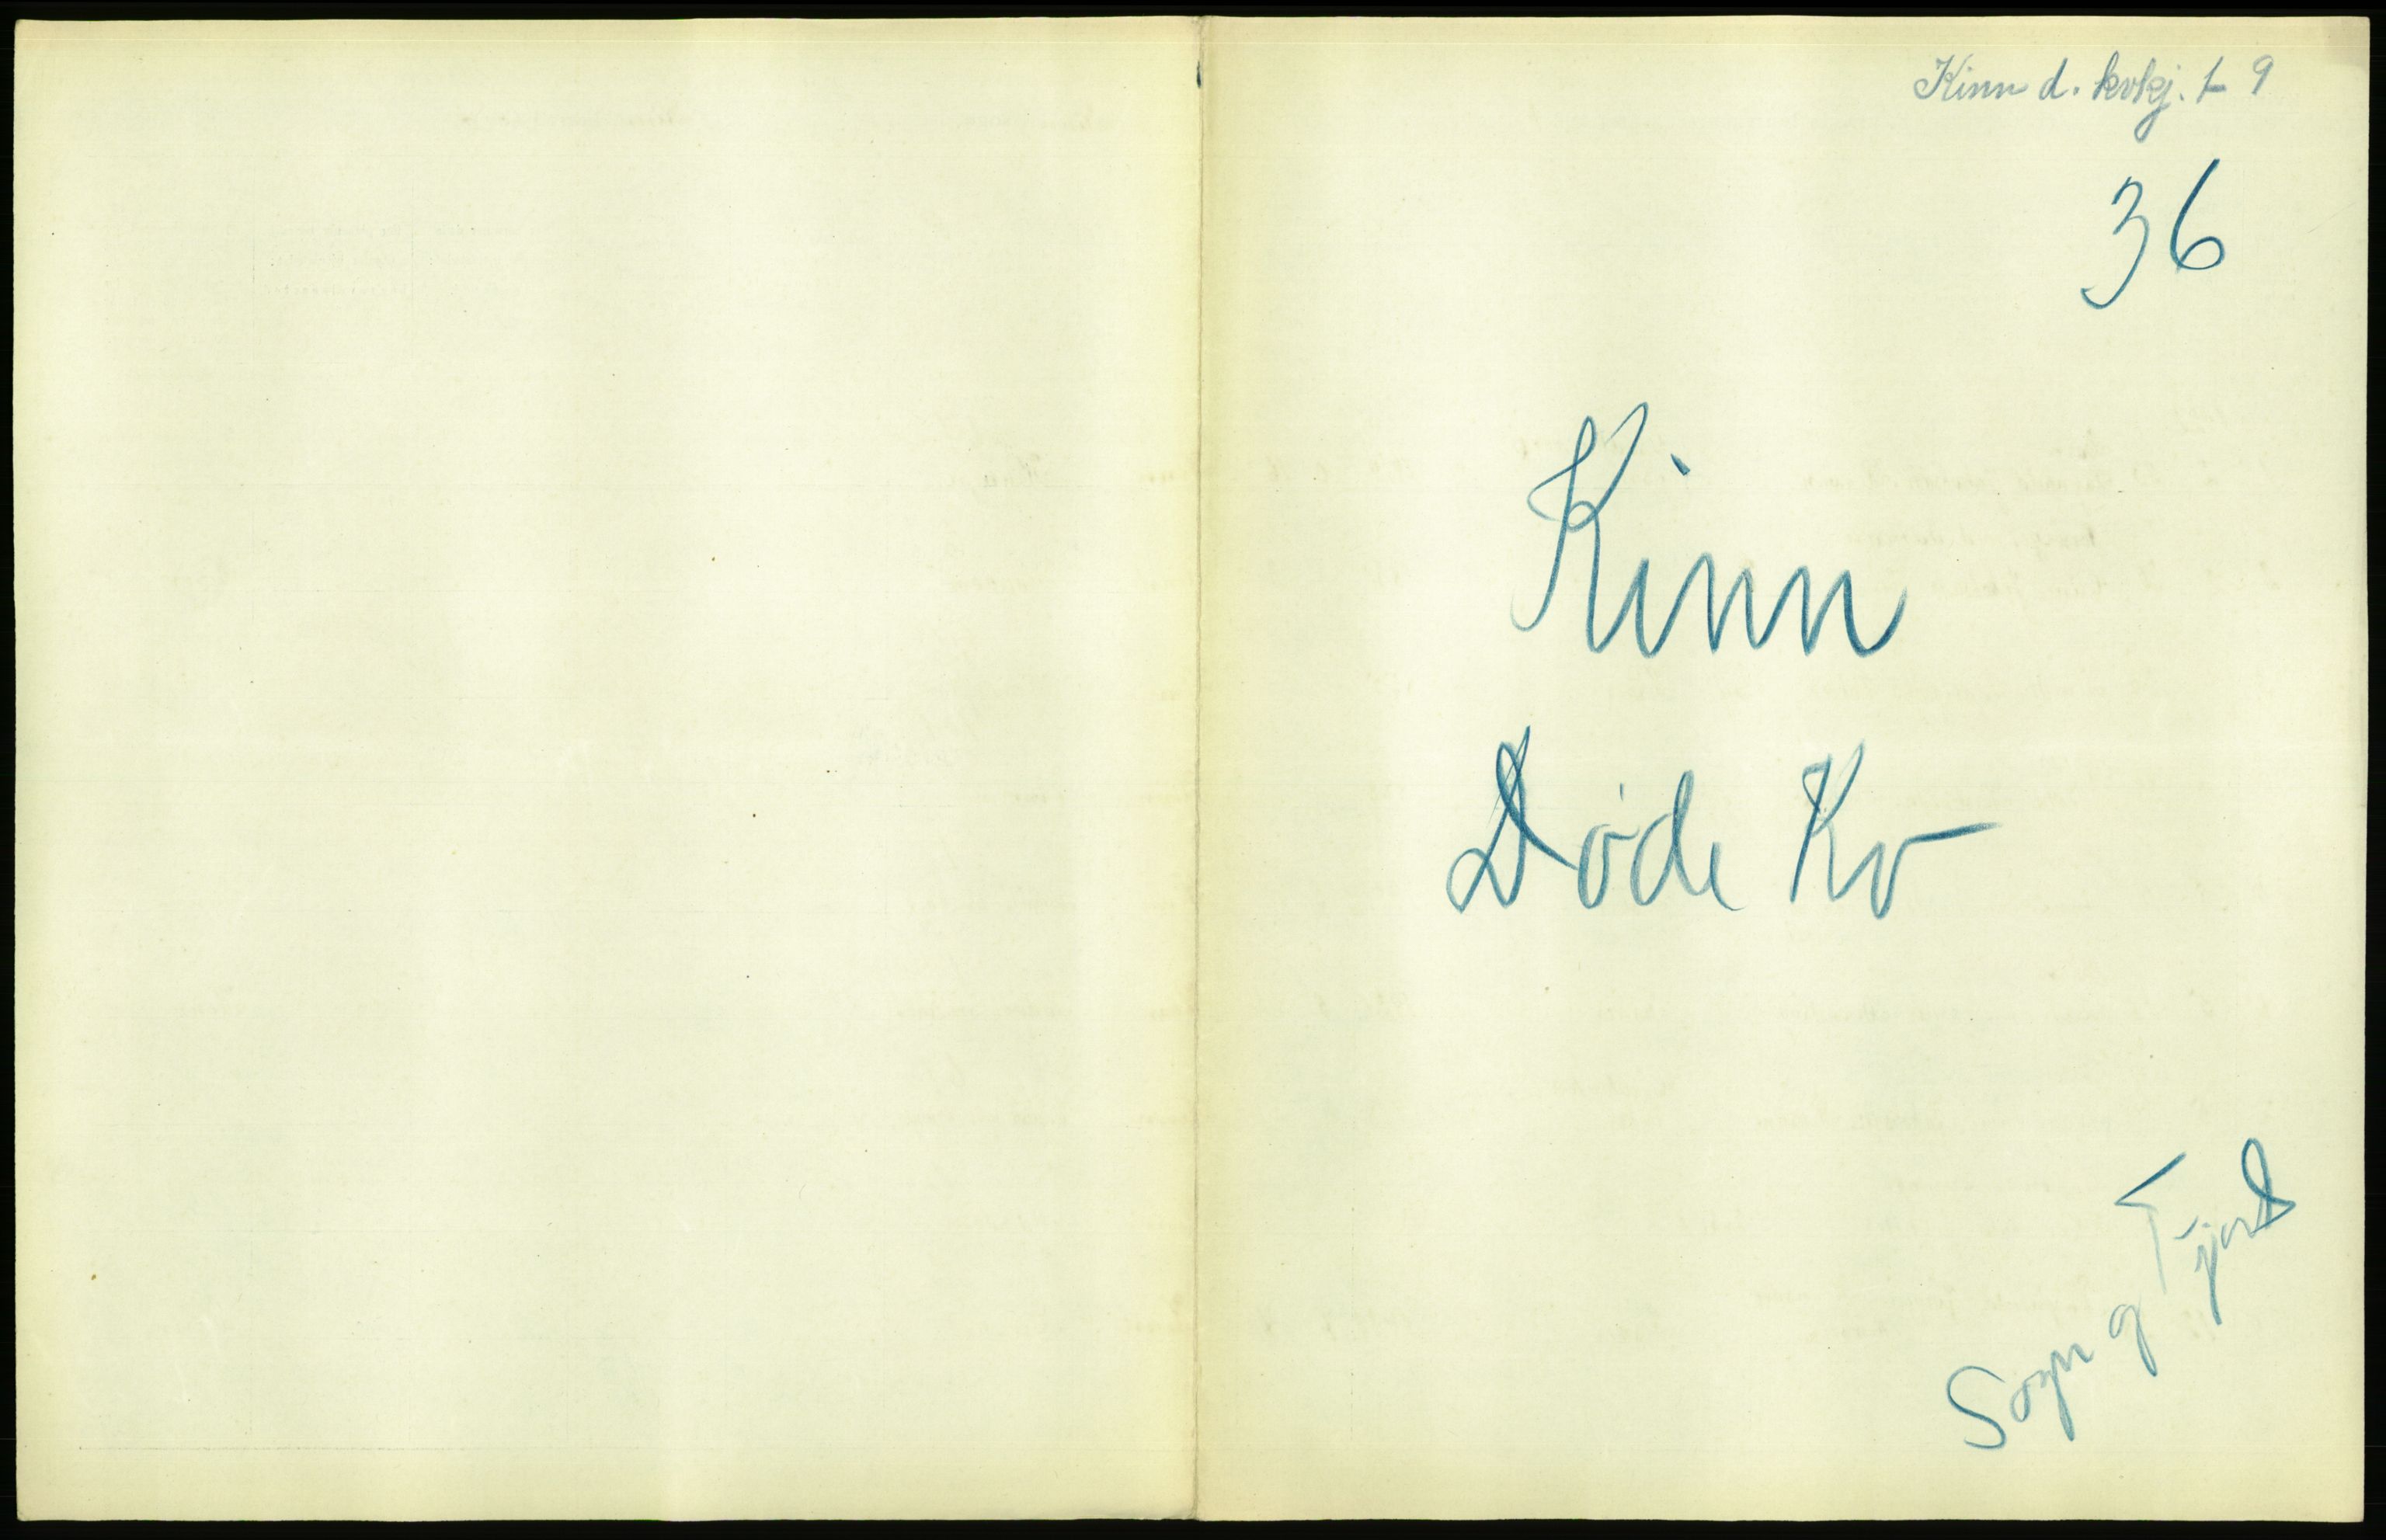 Kinn d. kvkj. 1-9
36
Kinn
Døde Kv
Sogn og Fjord